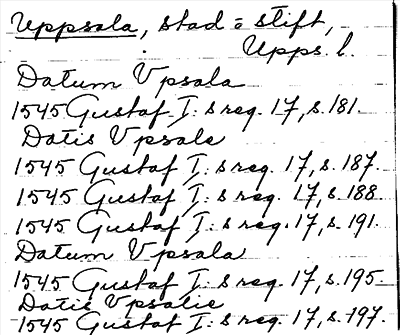 Uppsala, stad = stift,
Upps. l.
Datum Vpsala
1545 Gustaf I: s reg. 17, s. 181.
Datis Vpsale
1545 Gustaf I: s reg. 17, s. 187.
1545 Gustaf I: s reg. 17, s. 188
1545 Gustaf I: s reg. 17, s. 191.
Datum Vpsala
1545 Gustaf I: s reg. 17, s. 195.
Datis Vpsalie
1545 Gustaf I: s reg. 17, s. 197.